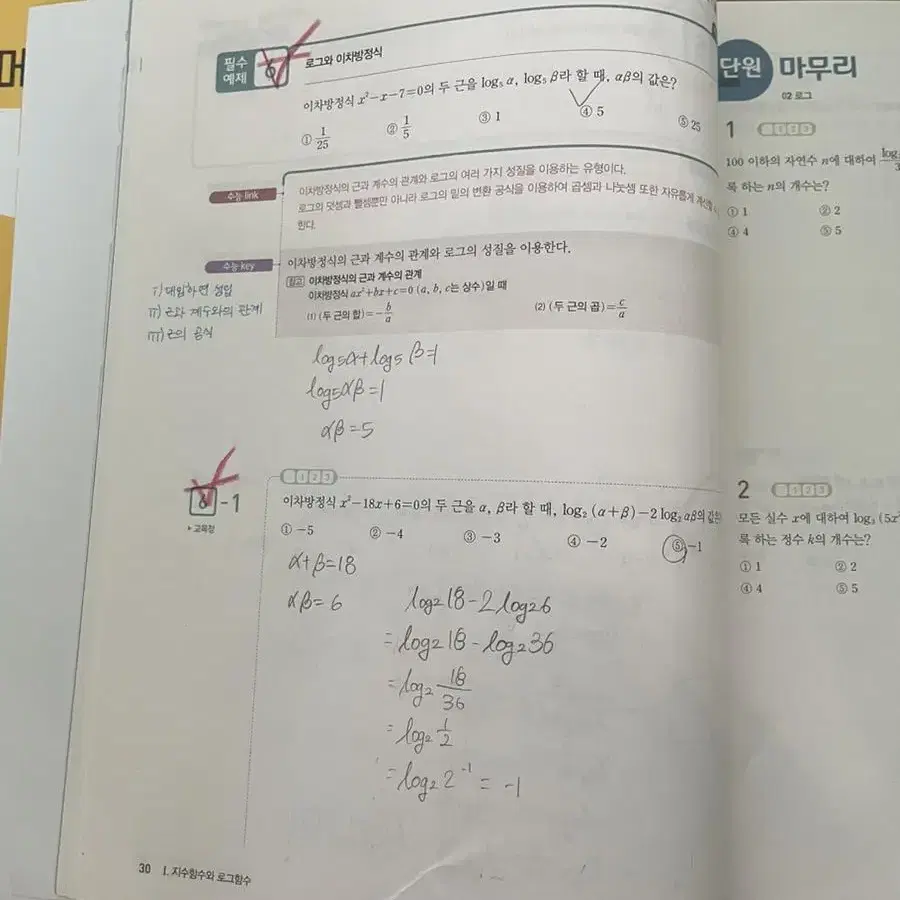 필수
예제
6
로그와 이차방정식
이차방정식 x²-x-7=0의 두 근을 log₅ α, log₅ β라 할 때, αβ의 값은?
① 1/25 ② 1/5 ③ 1 ④ 5 ⑤ 25
수능 link
이차방정식의 근과 계수의 관계와 로그의 여러 가지 성질을 이용하는 유형이다.
로그의 덧셈과 뺄셈뿐만 아니라 로그의 밑의 변환 공식을 이용하여 곱셈과 나눗셈 또한 자유롭게
한다.
수능 key
이차방정식의 근과 계수의 관계와 로그의 성질을 이용한다.
참고 이차방정식의 근과 계수의 관계
이차방정식 ax²+bx+c=0 (a, b, c는 상수)일 때
(1) (두 근의 합)=-b/a (2) (두 근의 곱)=c/a
i) 대입하면 성립
ii) 근과 계수와의 관계
iii) 근의 공식
log₅α+log₅β=1
log₅αβ=1
αβ=5
6-1
1 2 3
▸교육청
이차방정식 x²-18x+6=0의 두 근을 α, β라 할 때, log₂ (α+β)-2 log₂ αβ의 값은
① -5 ② -4 ③ -3 ④ -2 ⑤ -1
α+β=18
αβ=6
log₂18-2log₂6
=log₂18-log₂36
=log₂ 18/36
=log₂ 1/2
=log₂2⁻¹ = -1
30 I. 지수함수와 로그함수
단원 마무리
02 로그
1
1 2 3
100 이하의 자연수 n에 대하여
록 하는 n의 개수는?
① 1 ② 2
④ 4 ⑤ 5
2
1 2 3
모든 실수 x에 대하여 log₃ (5x²
록 하는 정수 k의 개수는?
① 1 ② 2
④ 4 ⑤ 5